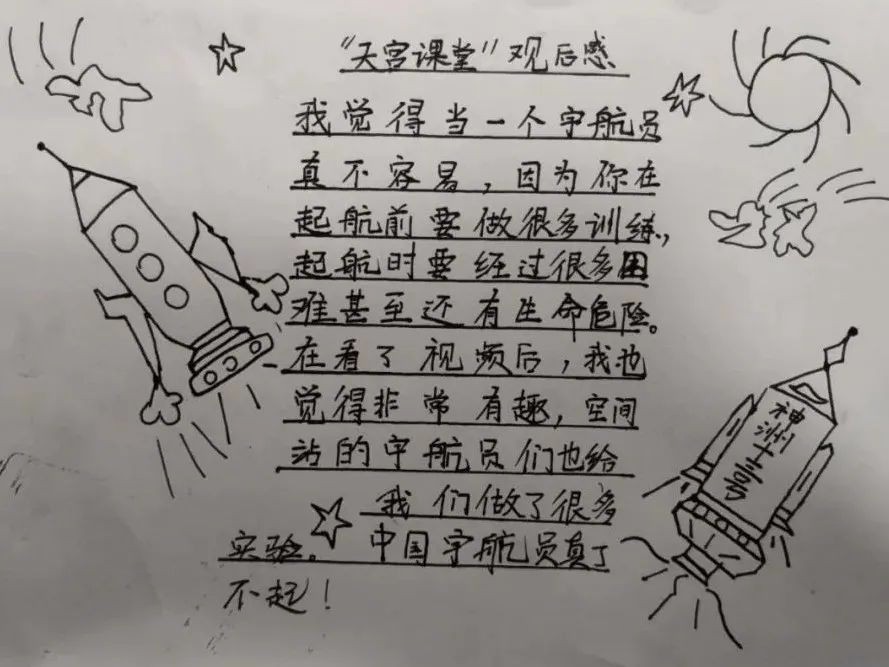 “天宫课堂”观后感
我觉得当一个宇航员
真不容易，因为你在
起航前要做很多训练，
起航时要经过很多困
难甚至还有生命危险。
在看了视频后，我也
觉得非常有趣，空间
站的宇航员们也给
我们做了很多
实验。中国宇航员真了
不起！
神洲十三号